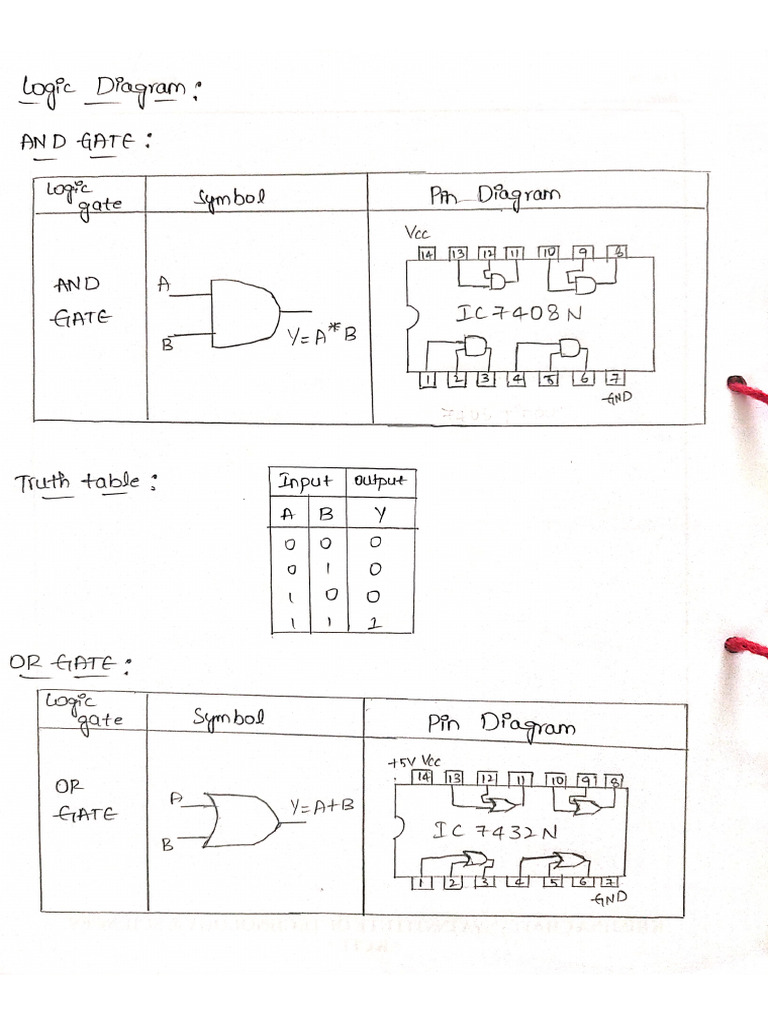 Logic Diagram:
AND GATE:
Logic gate Symbol Pin Diagram
Vcc
14 13 12 11 10 9 8
AND
GATE
A
B
Y=A*B
IC7408N
1 2 3 4 5 6 7
GND
Truth table:
Input Output
A B Y
0 0 0
0 1 0
1 0 0
1 1 1
OR GATE:
Logic gate Symbol Pin Diagram
+5V Vcc
14 13 12 11 10 9 8
OR
GATE
A
B
Y=A+B
IC 7432N
1 2 3 4 5 6 7
GND